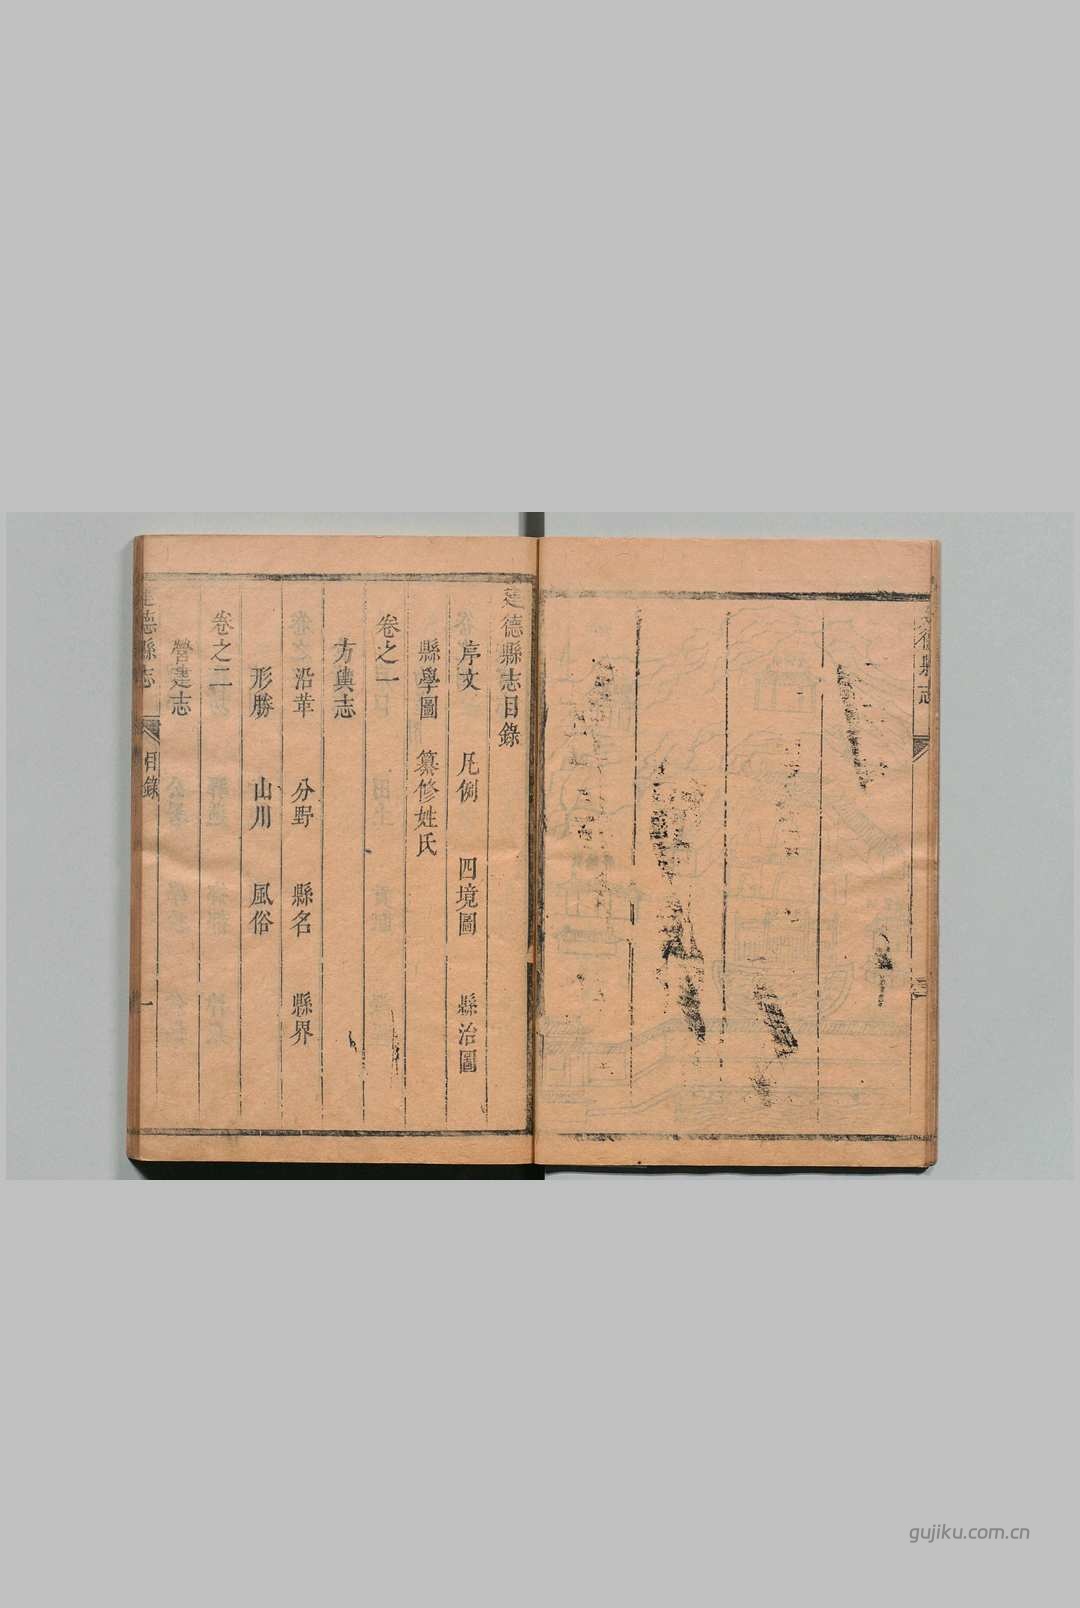 建德縣志
建德縣志目錄
序文 凡例 四境圖 縣治圖
縣學圖 纂修姓氏
卷之一
方輿志
沿革 分野 縣名 縣界
形勝 山川 風俗
卷之二
營建志
建德縣志 目錄 一
gujiku.com.cn